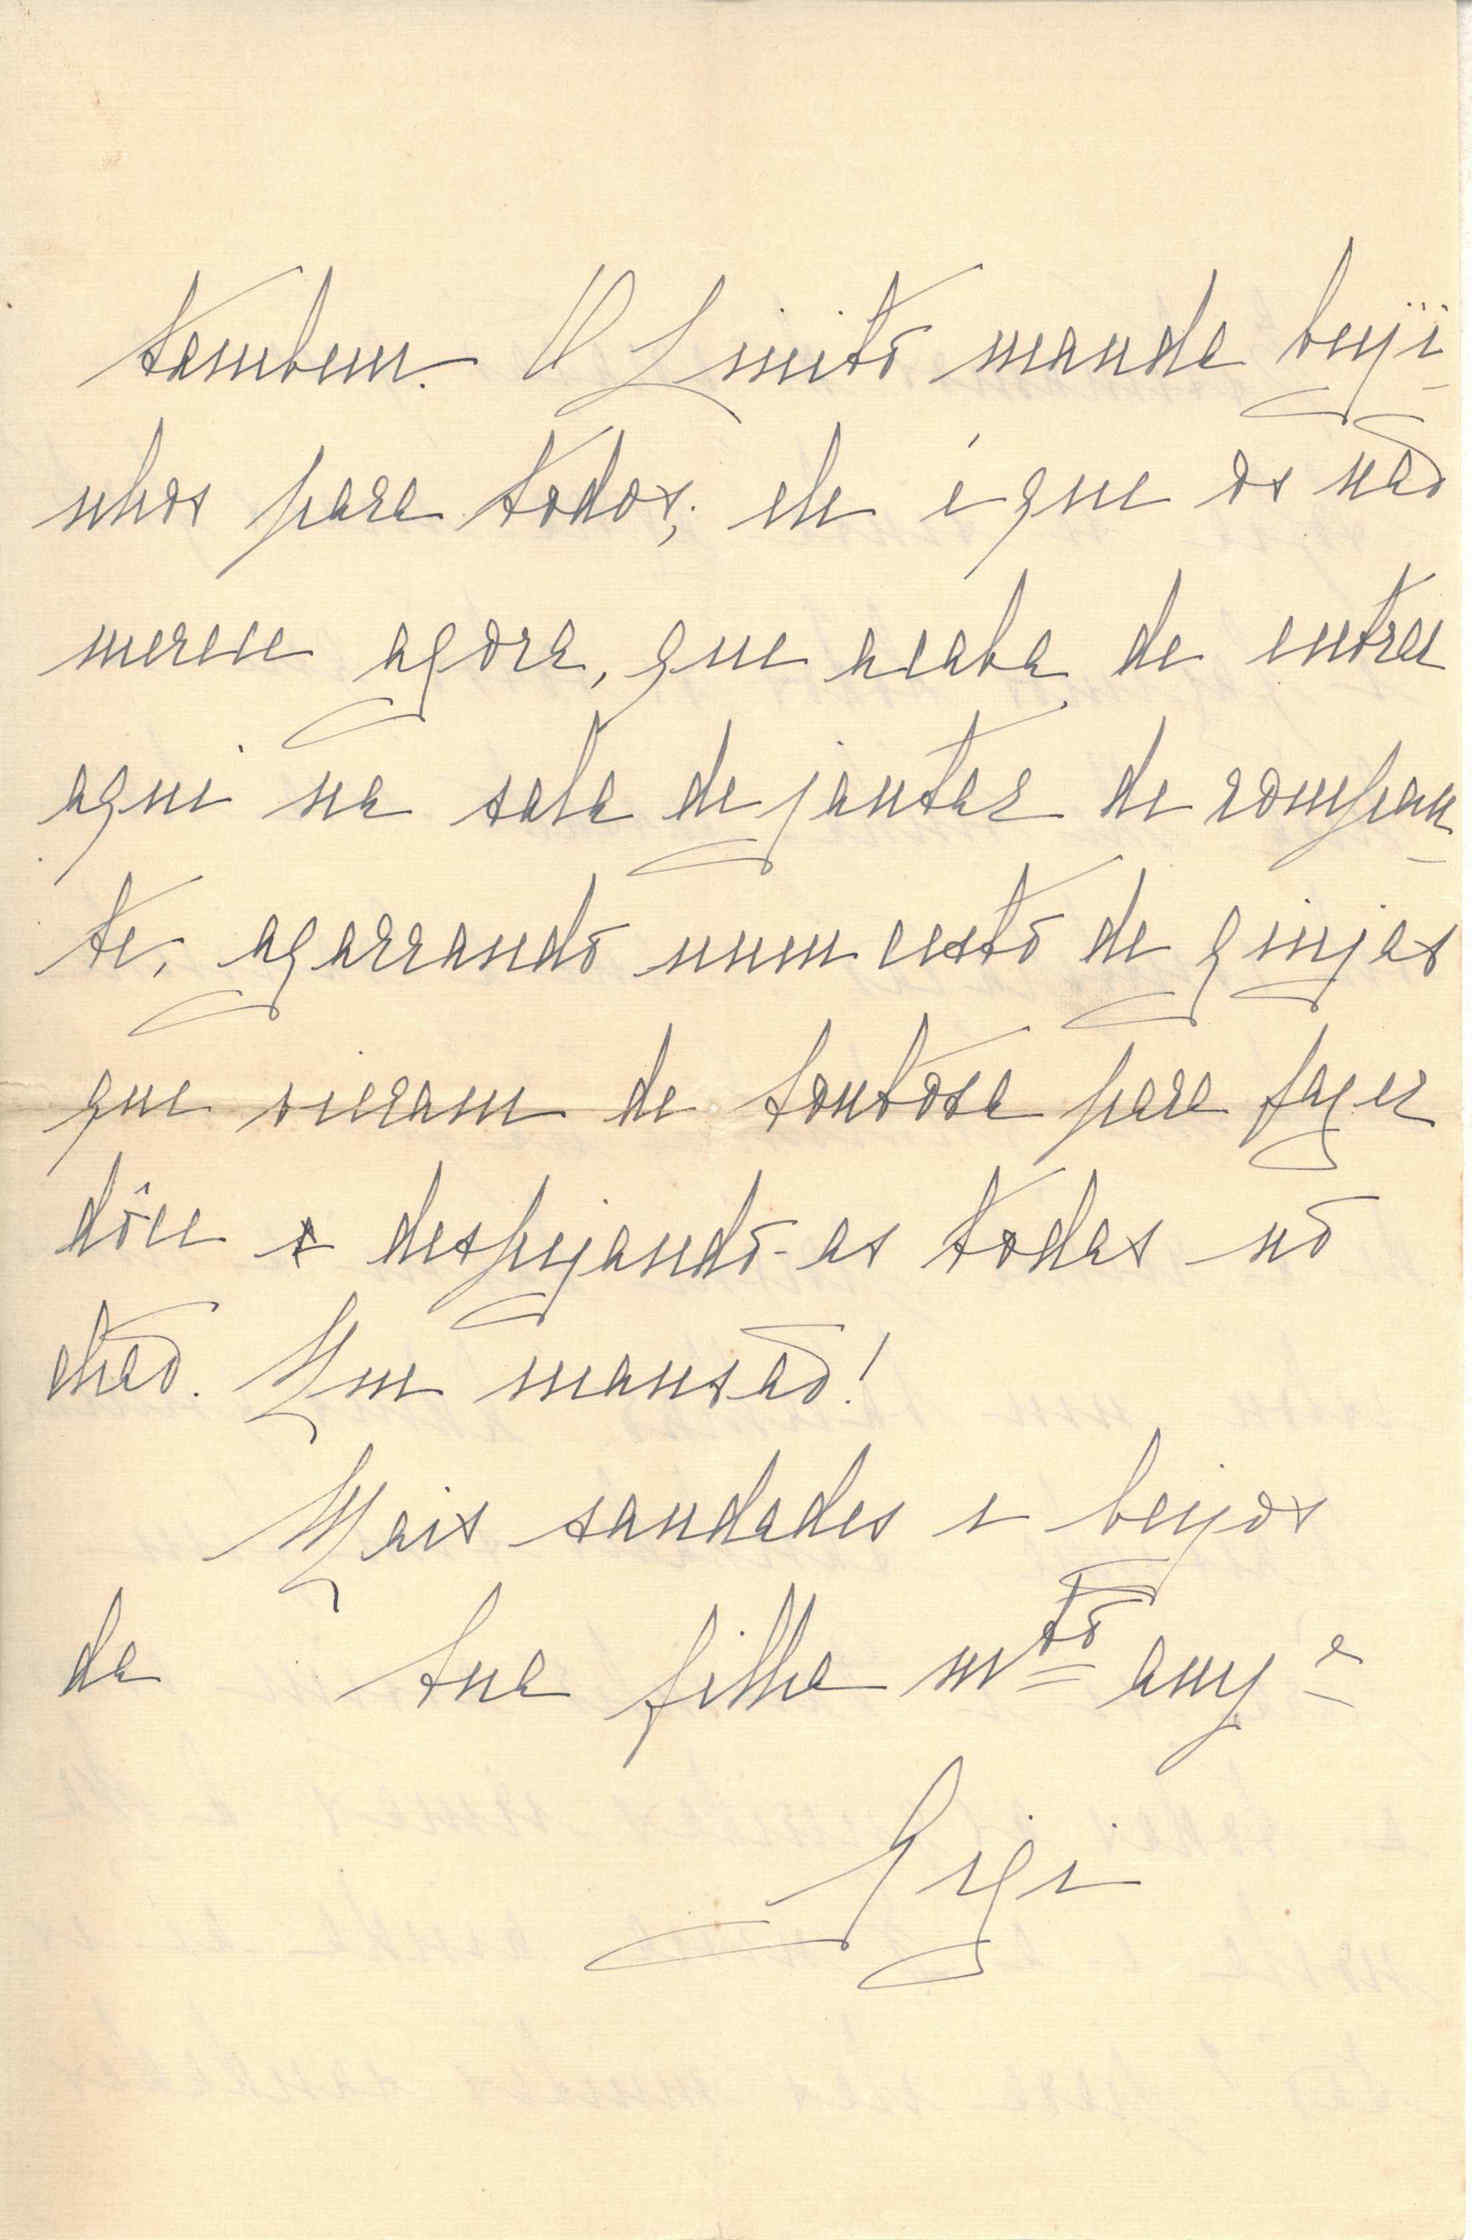 tambem. O Zinito manda beiji-
nhos para todos; ele é que os não
merece agora, que acaba de entrar
aqui na sala de jantar de rompan-
te, agarrando num cesto de ginjas
que vieram de para fazer
dôce e despejando-as todas no
chão. Um mansão!
Mais saudades e beijos
da tua filha mto amga
Gigi